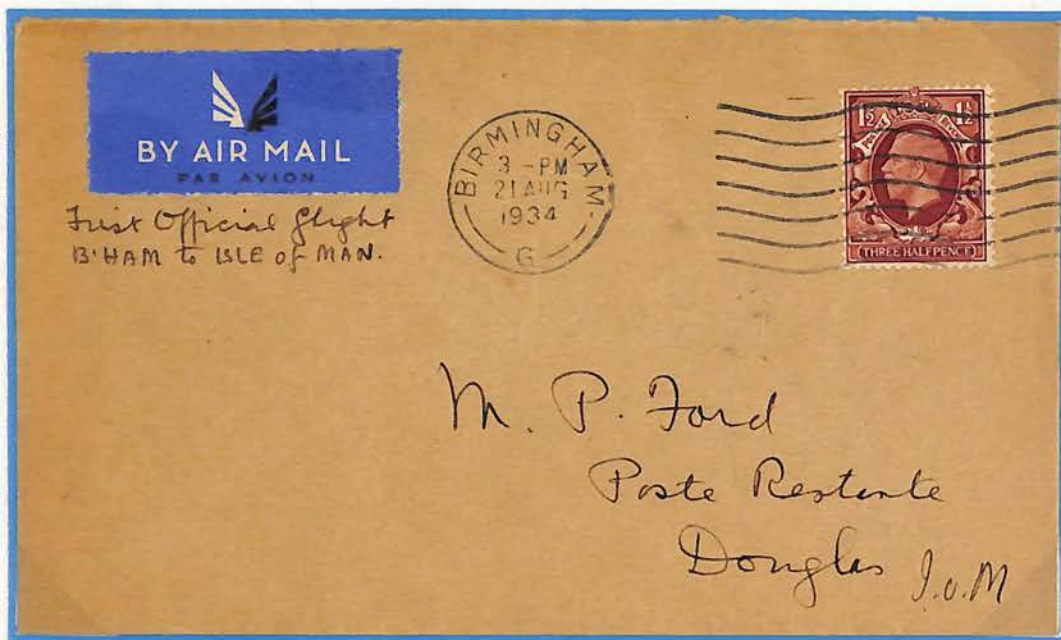 BY AIR MAIL
PAR AVION
First Official Flight
B'HAM to ISLE of MAN.
BIRMINGHAM
3 - PM
21 AUG
1934
G
1½ 1½
(THREE HALFPENCE)
M. P. Ford
Poste Restante
Douglas I.o.M